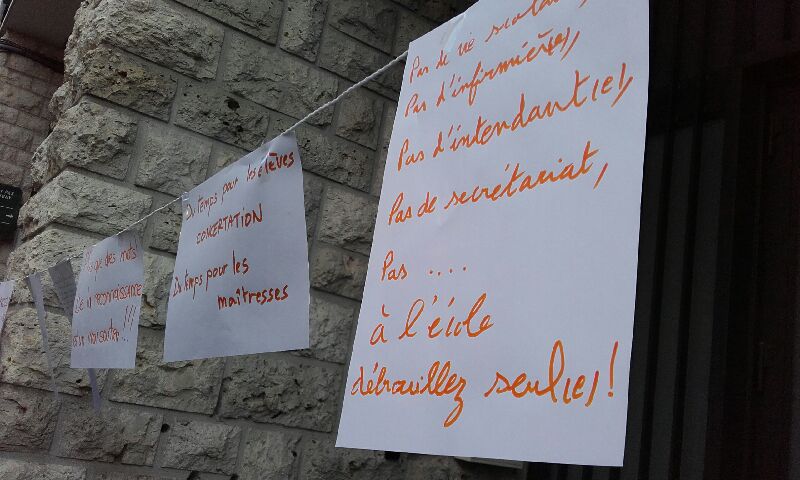 Pas de vie scolaire,
Pas d'infirmière(e),
Pas d'intendant(e),
Pas de secrétariat,
Pas ....
à l'école
débrouillez seul(e)!
Du temps pour les élèves
CONCERTATION
Du temps pour les
maîtresses
que des mots!
reconnaissance